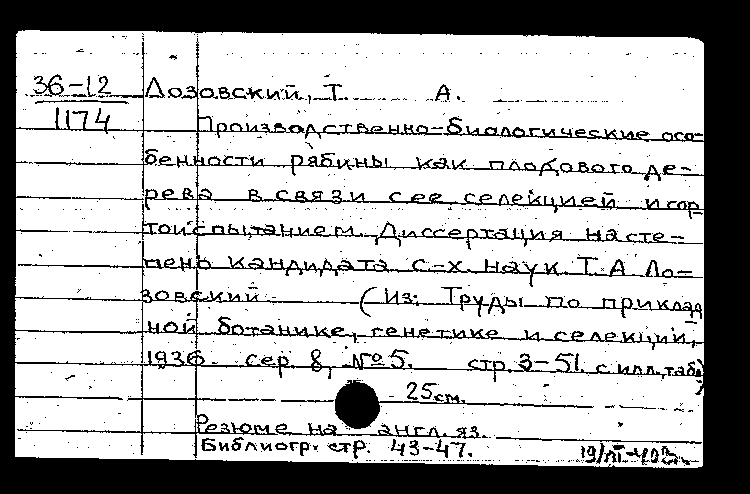 36-12 Лозовский, Т. А.
1174 Производственно-биологические осо-
бенности рябины как плодового де-
рева в связи с ее селекцией и сор
тоиспытанием. Диссертация на сте-
пень кандидата с-х. наук Т. А Ло-
зовский (Из: Труды по приклад
ной ботанике, генетике и селекции,
1936 сер. 8, № 5. стр. 3-51. с илл, табл)
25 см.
Резюме на англ. яз.
Библиогр. стр. 43-47.